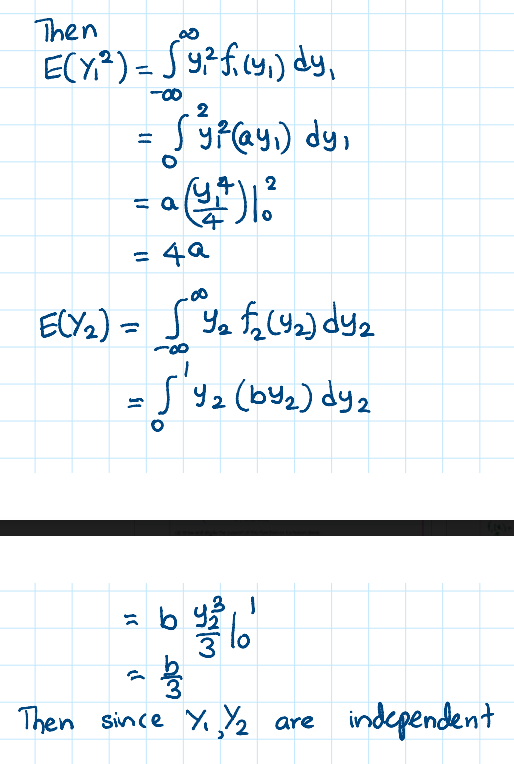 Then
E(Y₁²) = ∫_{-∞}^{∞} y₁² f₁(y₁) dy₁
= ∫_0^2 y₁²(ay₁) dy₁
= a(y₁⁴/4)|_0^2
= 4a
E(Y₂) = ∫_{-∞}^{∞} y₂ f₂(y₂) dy₂
= ∫_0^1 y₂ (by₂) dy₂
= b y₂³/3 |_0^1
= b/3
Then since Y₁,Y₂ are independent